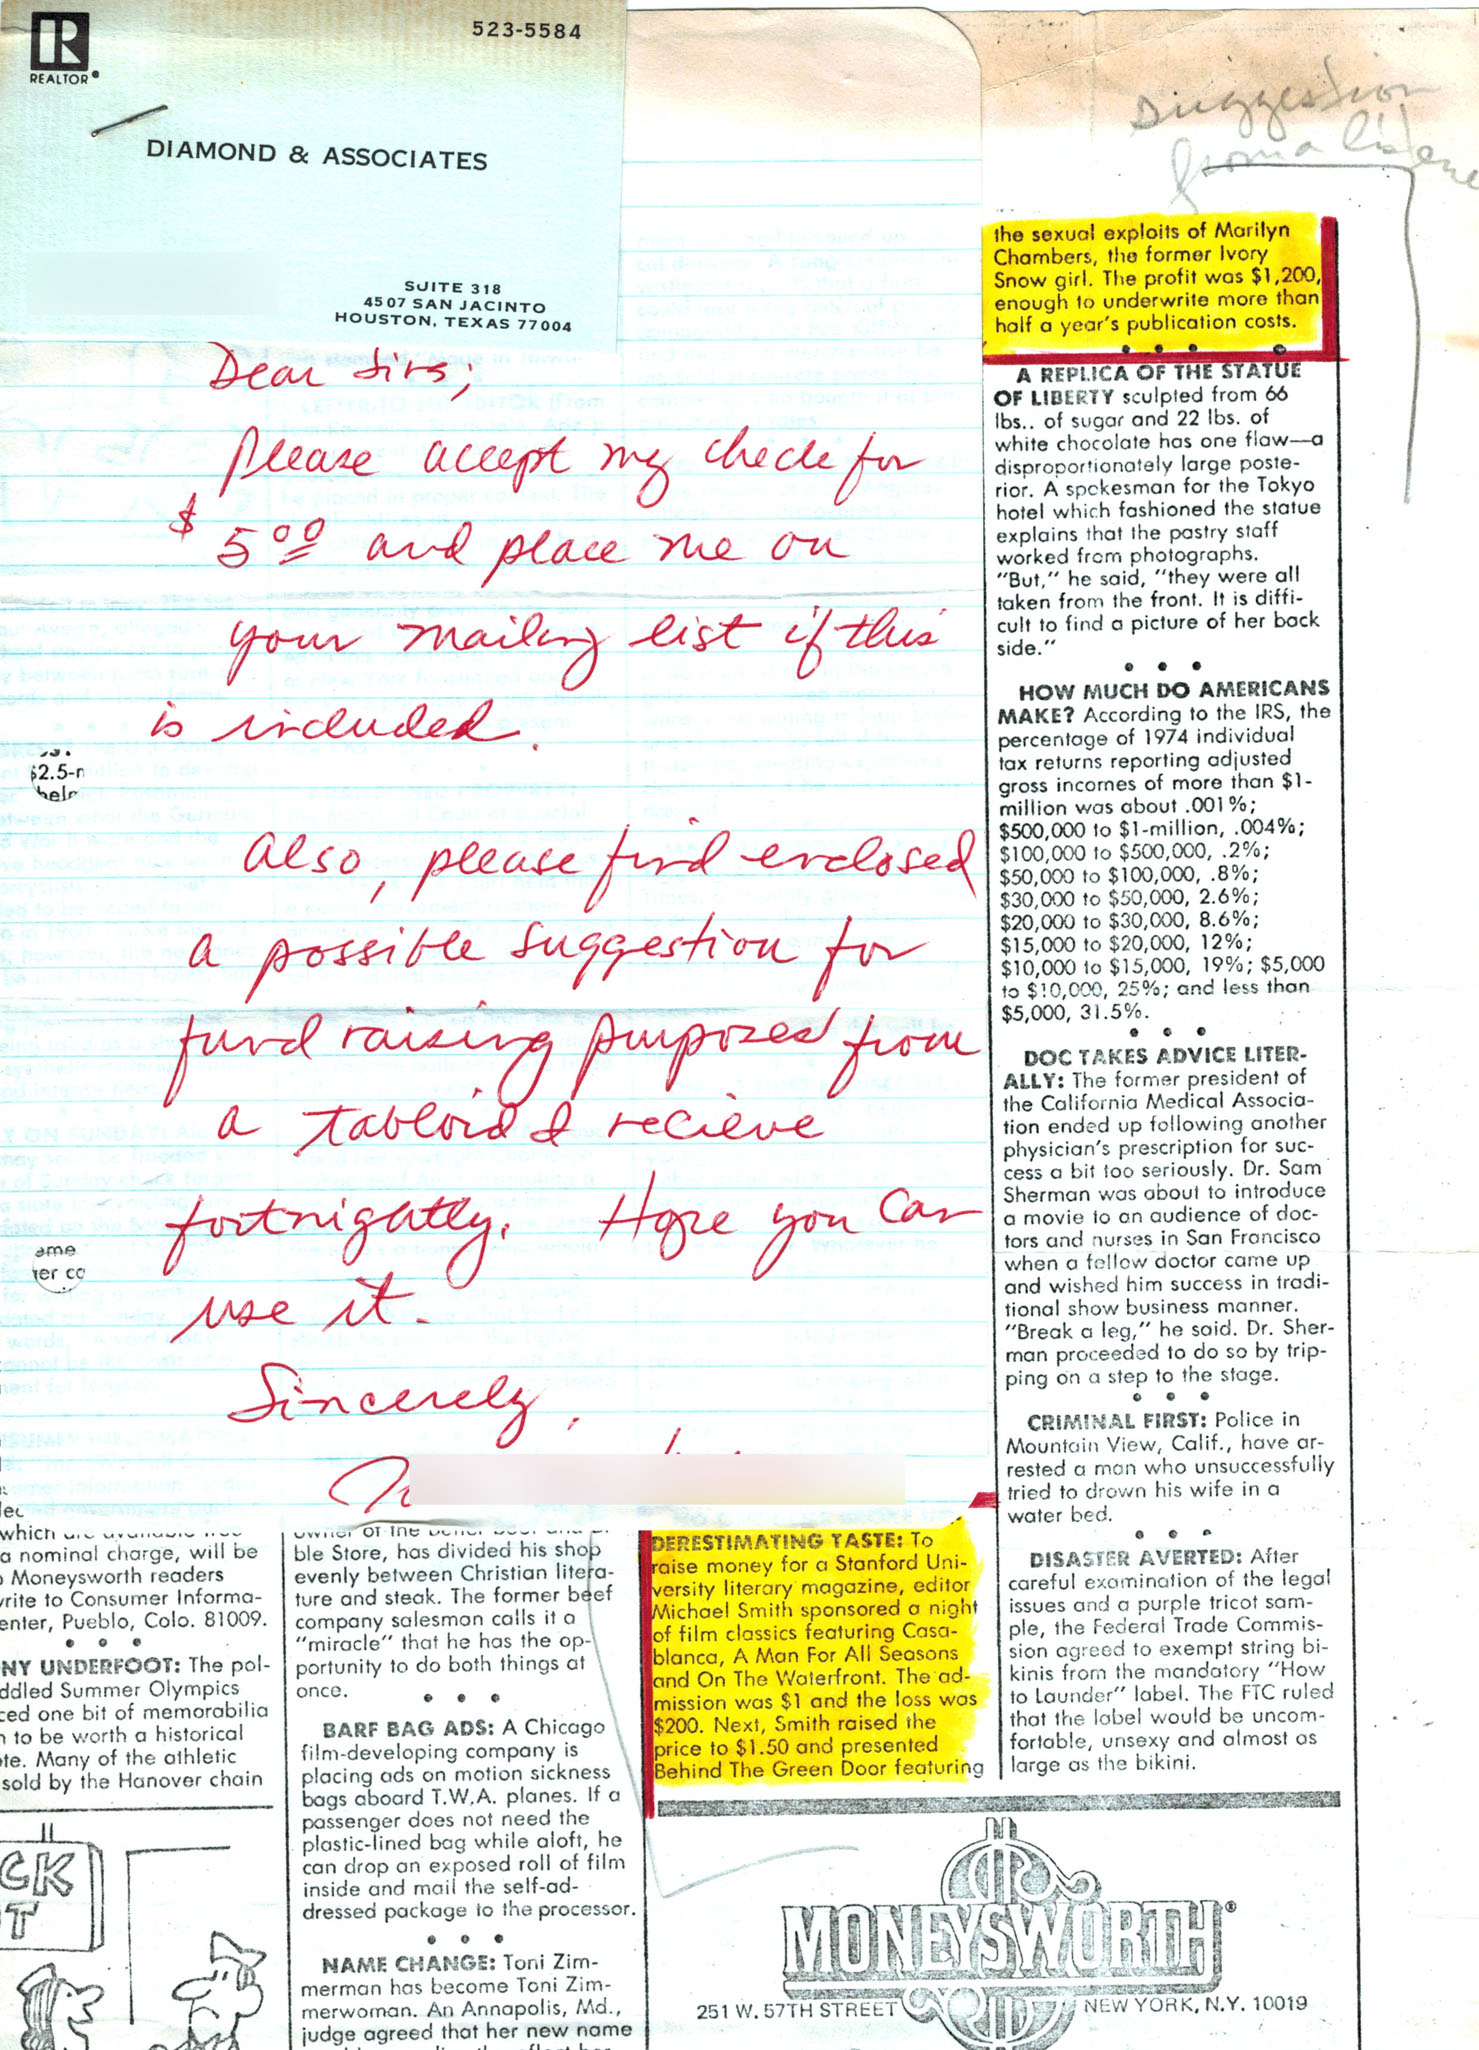 523-5584
REALTOR®
DIAMOND & ASSOCIATES
SUITE 318
4507 SAN JACINTO
HOUSTON, TEXAS 77004
Suggestion
from a
Dear Sirs;
Please accept my check for
$ 5.00 and place me on
your mailing list if this
is included.
Also, please find enclosed
a possible suggestion for
fund raising purposes from
a tabloid I recieve
fortnightly. Hope you can
use it.
Sincerely,
the sexual exploits of Marilyn
Chambers, the former Ivory
Snow girl. The profit was $1,200,
enough to underwrite more than
half a year's publication costs.
• • • •
A REPLICA OF THE STATUE
OF LIBERTY sculpted from 66
lbs.. of sugar and 22 lbs. of
white chocolate has one flaw—a
disproportionately large poste-
rior. A spokesman for the Tokyo
hotel which fashioned the statue
explains that the pastry staff
worked from photographs.
"But," he said, "they were all
taken from the front. It is diffi-
cult to find a picture of her back
side."
• • •
HOW MUCH DO AMERICANS
MAKE? According to the IRS, the
percentage of 1974 individual
tax returns reporting adjusted
gross incomes of more than $1-
million was about .001%;
$500,000 to $1-million, .004%;
$100,000 to $500,000, .2%;
$50,000 to $100,000, .8%;
$30,000 to $50,000, 2.6%;
$20,000 to $30,000, 8.6%;
$15,000 to $20,000, 12%;
$10,000 to $15,000, 19%; $5,000
to $10,000, 25%; and less than
$5,000, 31.5%.
• • •
DOC TAKES ADVICE LITER-
ALLY: The former president of
the California Medical Associa-
tion ended up following another
physician's prescription for suc-
cess a bit too seriously. Dr. Sam
Sherman was about to introduce
a movie to an audience of doc-
tors and nurses in San Francisco
when a fellow doctor came up
and wished him success in tradi-
tional show business manner.
"Break a leg," he said. Dr. Sher-
man proceeded to do so by trip-
ping on a step to the stage.
• • •
CRIMINAL FIRST: Police in
Mountain View, Calif., have ar-
rested a man who unsuccessfully
tried to drown his wife in a
water bed.
• • •
DISASTER AVERTED: After
careful examination of the legal
issues and a purple tricot sam-
ple, the Federal Trade Commis-
sion agreed to exempt string bi-
kinis from the mandatory "How
to Launder" label. The FTC ruled
that the label would be uncom-
fortable, unsexy and almost as
large as the bikini.
$2.5-n
ame
er co
which are available free
a nominal charge, will be
Moneysworth readers
rite to Consumer Informa-
enter, Pueblo, Colo. 81009.
• • •
NY UNDERFOOT: The pol-
ddled Summer Olympics
ced one bit of memorabilia
n to be worth a historical
te. Many of the athletic
sold by the Hanover chain
CK
T
owner of the
ble Store, has divided his shop
evenly between Christian litera-
ture and steak. The former beef
company salesman calls it a
"miracle" that he has the op-
portunity to do both things at
once.
• • •
BARF BAG ADS: A Chicago
film-developing company is
placing ads on motion sickness
bags aboard T.W.A. planes. If a
passenger does not need the
plastic-lined bag while aloft, he
can drop an exposed roll of film
inside and mail the self-ad-
dressed package to the processor.
• • •
NAME CHANGE: Toni Zim-
merman has become Toni Zim-
merwoman. An Annapolis, Md.,
judge agreed that her new name
DERESTIMATING TASTE: To
raise money for a Stanford Uni-
versity literary magazine, editor
Michael Smith sponsored a night
of film classics featuring Casa-
blanca, A Man For All Seasons
and On The Waterfront. The ad-
mission was $1 and the loss was
$200. Next, Smith raised the
price to $1.50 and presented
Behind The Green Door featuring
MONEYSWORTH®
251 W. 57TH STREET NEW YORK, N.Y. 10019